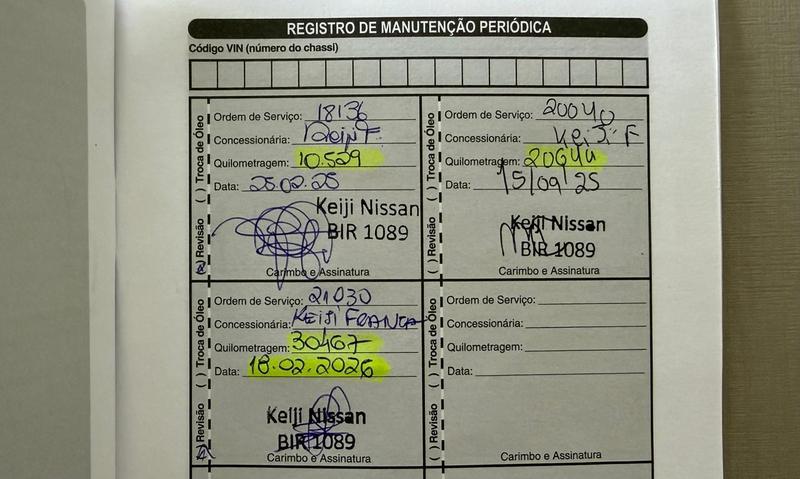 REGISTRO DE MANUTENÇÃO PERIÓDICA
Código VIN (número do chassi)
( ) Revisão ( ) Troca de Óleo
Ordem de Serviço: 18136
Concessionária:
Quilometragem: 10.529
Data: 25.02.25
Keiji Nissan
BIR 1089
Carimbo e Assinatura
( ) Revisão ( ) Troca de Óleo
Ordem de Serviço: 20040
Concessionária: Keiji F
Quilometragem: 20644
Data: 15/09/25
Keiji Nissan
BIR 1089
Carimbo e Assinatura
( ) Revisão ( ) Troca de Óleo
Ordem de Serviço: 21030
Concessionária: KEIJI FRANCA
Quilometragem: 30467
Data: 18.02.2026
Keiji Nissan
BIR 1089
Carimbo e Assinatura
( ) Revisão ( ) Troca de Óleo
Ordem de Serviço:
Concessionária:
Quilometragem:
Data:
Carimbo e Assinatura